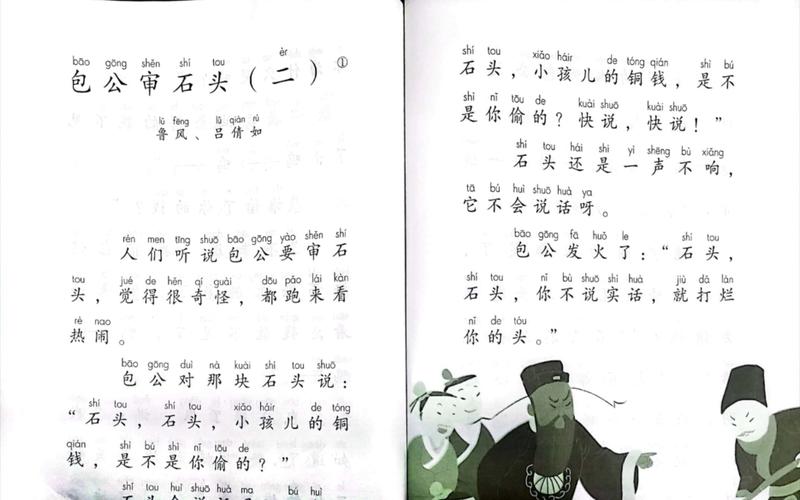 bāo gōng shěn shí tou èr
包公审石头（二）①
lǔ fēng lǚ qiàn rú
鲁风、吕倩如
rén men tīng shuō bāo gōng yào shěn shí
人们听说包公要审石
tou jué de hěn qí guài dōu pǎo lái kàn
头，觉得很奇怪，都跑来看
rè nao
热闹。
bāo gōng duì nà kuài shí tou shuō
包公对那块石头说：
shí tou shí tou xiǎo háir de tóng
“石头，石头，小孩儿的铜
qián shì bú shì nǐ tōu de
钱，是不是你偷的？”
shí tou huì shuō huà ma bú huì
石头会说话吗
shí tou xiǎo háir de tóng qián shì bú
石头，小孩儿的铜钱，是不
shì nǐ tōu de kuài shuō kuài shuō
是你偷的？快说，快说！”
shí tou hái shi yì shēng bù xiǎng
石头还是一声不响，
tā bú huì shuō huà ya
它不会说话呀。
bāo gōng fā huǒ le shí tou
包公发火了：“石头，
shí tou nǐ bù shuō shí huà jiù dǎ làn
石头，你不说实话，就打烂
nǐ de tóu
你的头。”